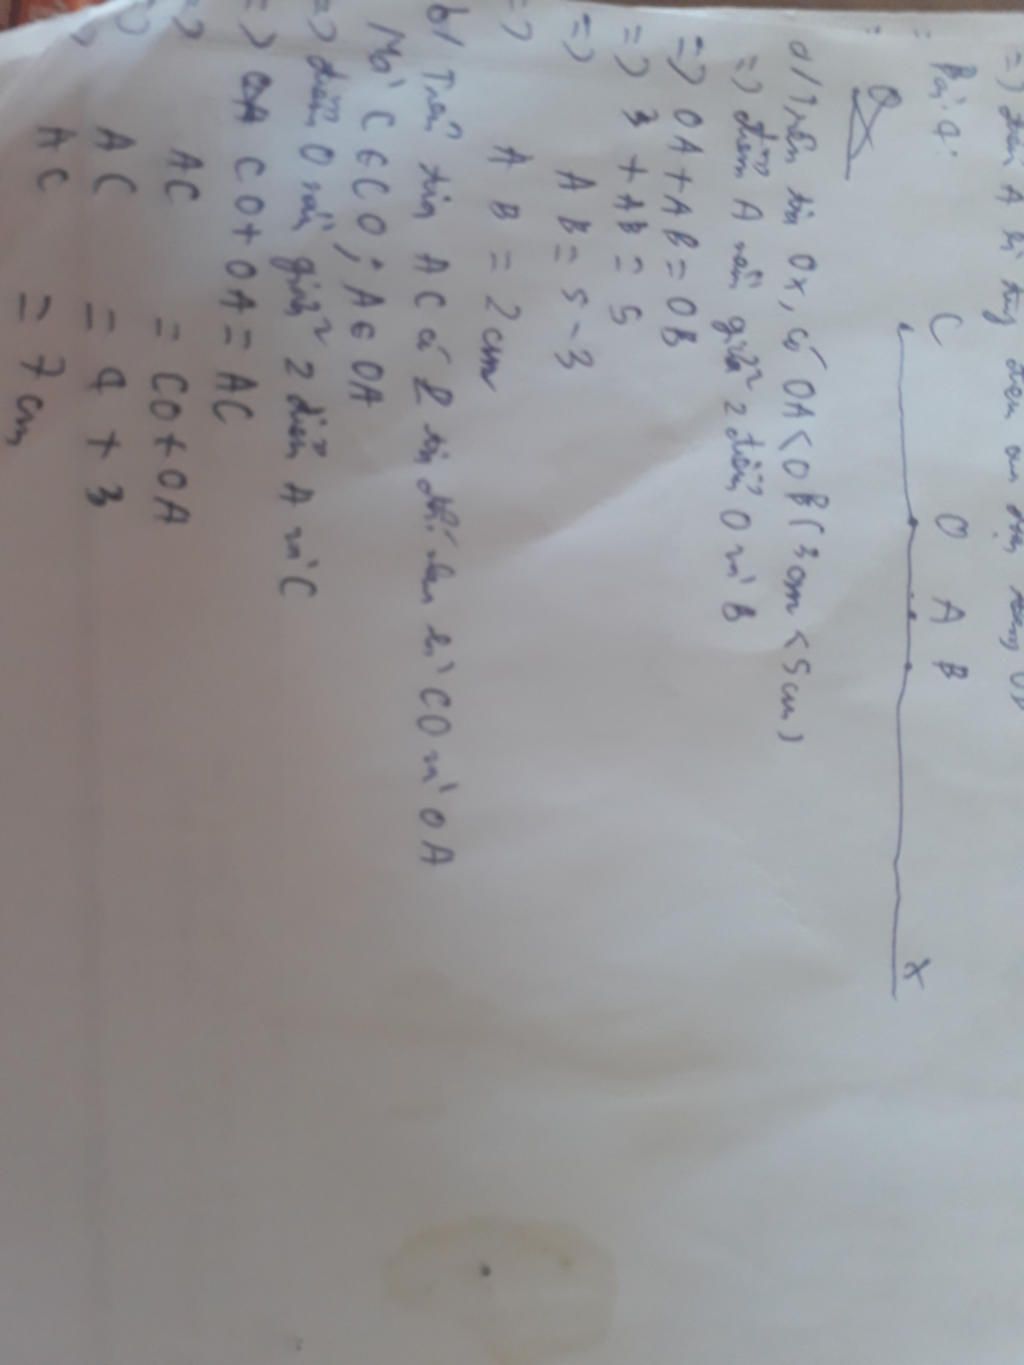 =) điểm A là trung điểm của đoạn thẳng OB
Bài 4:
C O A B x
a/ Trên tia Ox, có OA < OB (3cm < 5cm)
=) điểm A nằm giữa 2 điểm O và B
=) OA + AB = OB
=) 3 + AB = 5
=) AB = 5 - 3
=) AB = 2 cm
b/ Trên tia AC có 2 tia đối nhau là CO và OA
Mà C ∈ CO ; A ∈ OA
=) điểm O nằm giữa 2 điểm A và C
=) CO + OA = AC
=) AC = CO + OA
=) AC = 4 + 3
=) AC = 7 cm